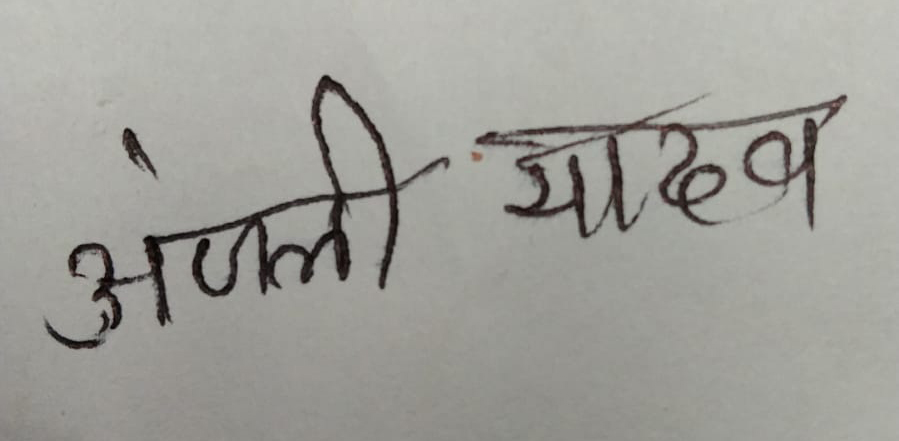 अंजली यादव